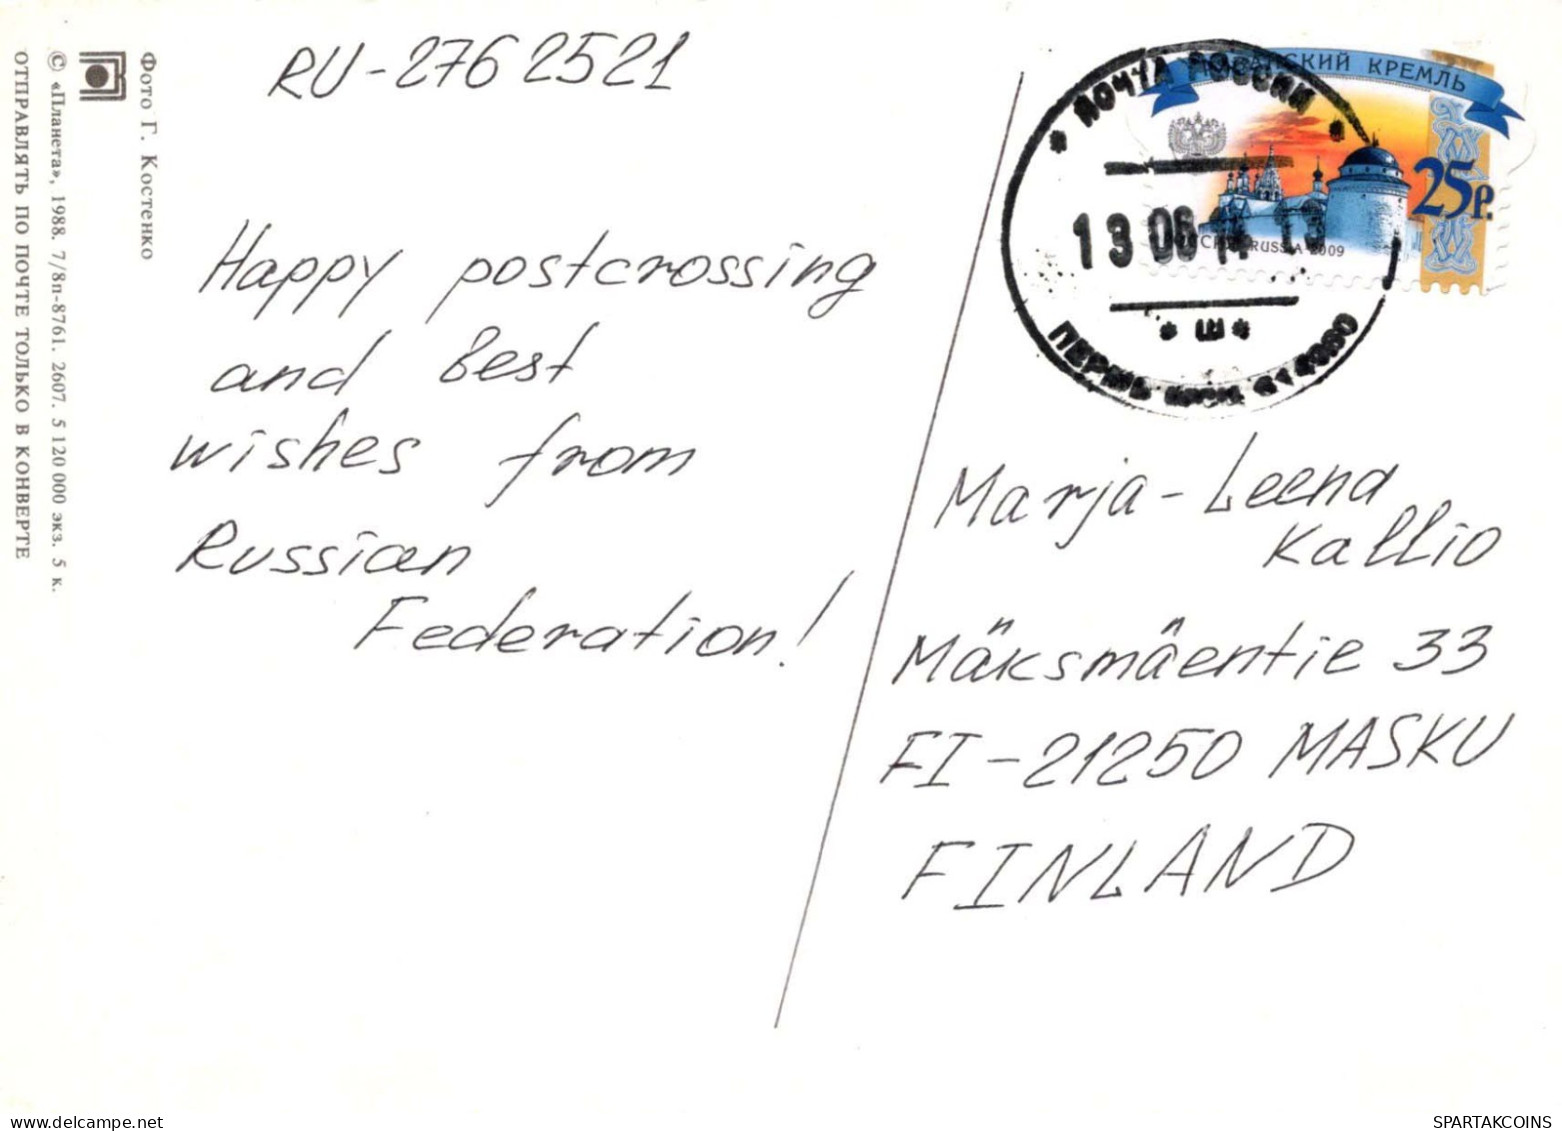 RU-2762521
Happy postcrossing
and best
wishes from
Russian
Federation!
Marja-Leena
Kallio
Mäksmäentie 33
FI-21250 MASKU
FINLAND
ПОЧТА РОССИИ
13 06 14 13
* Ш *
ПЕРМЬ
КРЕМЛЬ
25р.
RUSSIA 2009
Фото Г. Костенко
© «Планета», 1988. 7/8п-8761. 2607. 5 120 000 экз. 5 к.
ОТПРАВЛЯТЬ ПО ПОЧТЕ ТОЛЬКО В КОНВЕРТЕ
SPARTAKCOINS
https://www.delcampe.net